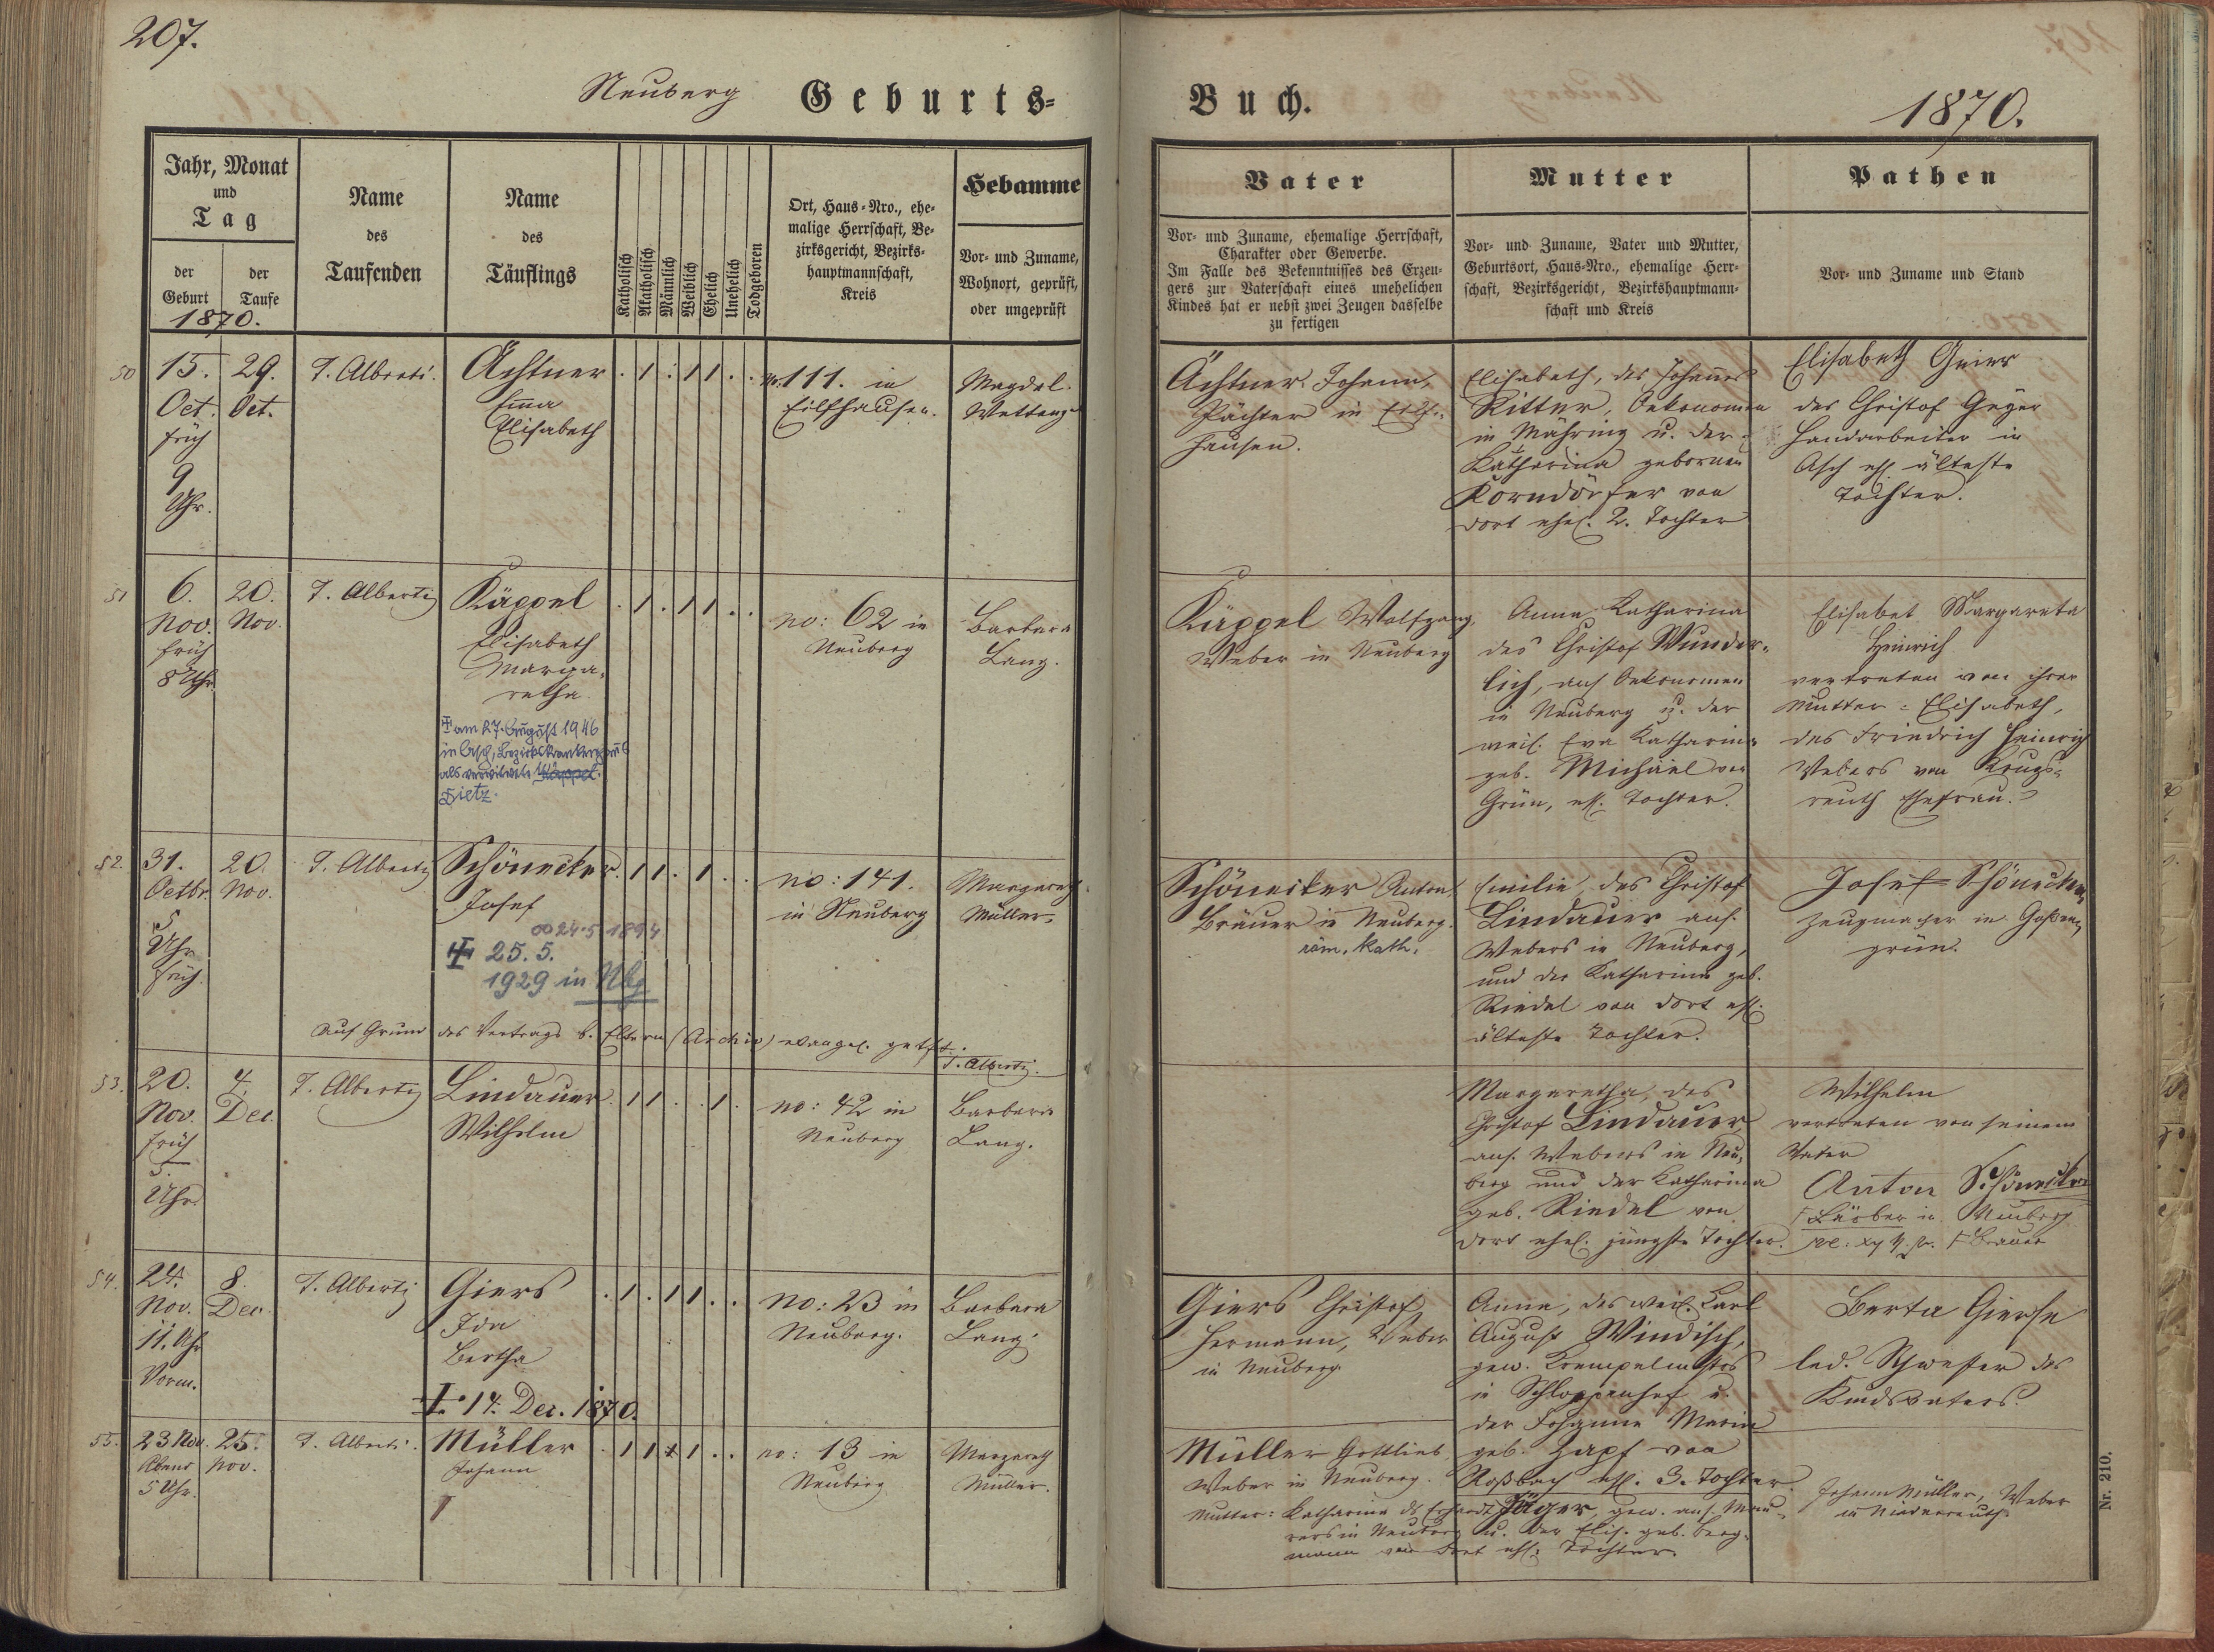 207.
Neuberg Geburts=
Buch.
1870.
Jahr, Monat
und
Tag
der
Geburt
der
Taufe
1870.
Name
des
Taufenden
Name
des
Täuflings
Katholisch
Akatholisch
Männlich
Weiblich
Ehelich
Unehelich
Todgeboren
Ort, Haus=Nro., ehe=
malige Herrschaft, Be=
zirksgericht, Bezirks=
hauptmannschaft,
Kreis
Hebamme
Vor= und Zuname,
Wohnort, geprüft,
oder ungeprüft
Vater
Vor= und Zuname, ehemalige Herrschaft,
Charakter oder Gewerbe.
Im Falle des Bekenntnisses des Erzeu=
gers zur Vaterschaft eines unehelichen
Kindes hat er nebst zwei Zeugen dasselbe
zu fertigen
Mutter
Vor= und Zuname, Vater und Mutter,
Geburtsort, Haus=Nro., ehemalige Herr=
schaft, Bezirksgericht, Bezirkshauptmann=
schaft und Kreis
Pathen
Vor= und Zuname und Stand
50
15.
Oct.
früh
9
Uhr.
29.
Oct.
T. Alberti.
Ächtner
Emma
Elisabeth
. 1 . 1 1 . .
no. 111. in
Eilfhausen.
Magdal.
Ächtner Johann,
Pächter in Eilf=
hausen.
Elisabeth, des Johannes
Ritter, Oekonomen
in Mähring u. der
Katharina gebornen
Korndörfer von
dort ehel. 2. Tochter
Elisabeth Geier
des Christof Geyer
Handarbeiter in
Asch ehl. älteste
Tochter.
51
6.
Nov.
früh
8 Uhr
20.
Nov.
T. Alberti
Käppel
Elisabeth
Marga=
retha.
am 27. August 1946
in Asch, Bezirkskrankenhaus
als verwitwete Käppel
Dietz.
. 1 . 1 1 . .
no: 62 in
Neuberg
Barbara
Lang.
Käppel Wolfgang,
Weber in Neuberg
Anna Katharina
des Christof Wunder=
lich, ans. Oekonomen
in Neuberg u. der
weil. Eva Katharina
geb. Michäel von
Grün, ehl. Tochter.
Elisabet Margareta
Heinrich
vertreten von ihrer
Mutter: Elisabeth,
des Friedrich Heinrich
Webers von Krugs=
reuth Ehefrau.
52.
31.
Octbr.
5
Uhr
früh.
20.
Nov.
T. Alberti
Schönecker
Josef
∞ 24.5 1894
25.5.
1929 in Nbg
. 1 1 . 1 . .
no: 141.
in Neuberg
Margareth
Müller.
Auf Grund des Vertrags d. Eltern (Archiv) evangel. getft.
T. Alberti.
Schönecker Anton,
Bräuer in Neuberg.
röm. kath.
Emilie, des Christof
Lindauer ans.
Webers in Neuberg,
und der Katharina geb.
Riedel von dort ehl.
älteste Tochter.
Josef Schönecker,
Zeugmacher in Goßen=
grün.
53.
20.
Nov.
früh
5.
Uhr.
4.
Dec.
T. Alberti
Lindauer
Wilhelm
. 1 1 . . 1 .
no: 42 in
Neuberg
Barbara
Lang.
Margaretha, des
Christof Lindauer
ans. Webers in Neu=
berg und der Katharina
geb. Riedel von
dort ehel. jüngste Tochter.
Wilhelm
vertreten von seinem
Vater
Anton Schönecker
Färber in Neuberg
Brauer
54.
24.
Nov.
11. Uhr
Vorm.
8.
Dec.
T. Alberti
Giers
Ida
Bertha
14. Dec. 1870.
. 1 . 1 1 . .
no: 23 in
Neuberg.
Barbara
Lang.
Giers Christof
Hermann, Weber
in Neuberg
Anna, des weil. Carl
August Windisch,
gew. Krempelmstrs
in Schloppenhof u.
der Johanna Maria
geb. Zapf von
Roßbach ehl. 3. Tochter.
Berta Gierse
led. Schwester des
Kindsvaters.
55.
23 Nov.
Abend
5 Uhr.
25.
Nov.
T. Alberti.
Müller
Johann
. 1 1 . 1 . .
no: 13 in
Neuberg
Margareth
Müller.
Müller Gottlieb,
Weber in Neuberg.
Mutter: Katharina ds Erhardt Jäger, gew. ans. Mau=
rers in Neuberg u. der Elis. geb. Berg=
mann von dort ehl. Tochter.
Johann Müller, Weber
in Niederreuth
Nr. 210.